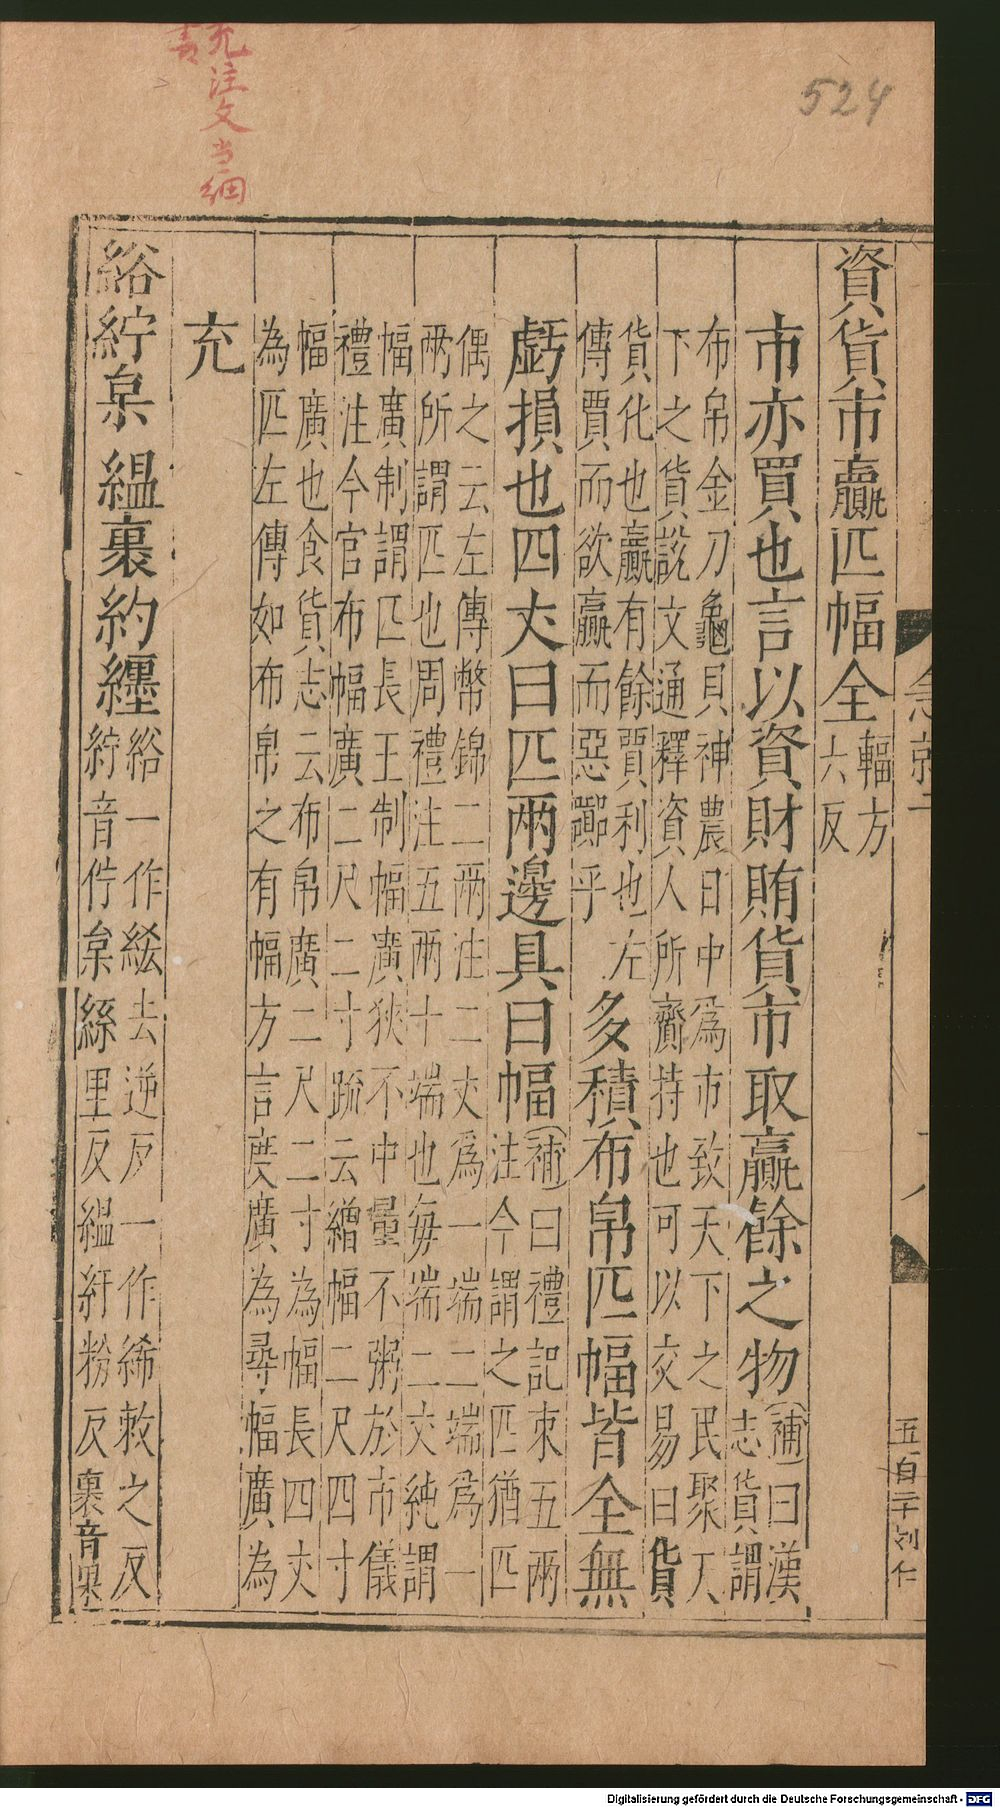 資貨市贏匹幅全輻方
六反
市亦買也言以資財賄貨市取贏餘之物補曰漢
志貨謂
布帛金刀龜貝神農日中爲市致天下之民聚天
下之貨說文通釋資人所齎持也可以交易曰貨
貨化也贏有餘賈利也左
傳賈而欲贏而惡嚻乎
多積布帛匹幅皆全無
虧損也四丈曰匹兩邊具曰幅補曰禮記束五兩
注今謂之匹猶匹
偶之云左傳幣錦二兩注二丈爲一端二端爲一
兩所謂匹也周禮注五兩十端也每端二丈純謂
幅廣制謂匹長王制幅廣狹不中量不粥於市儀
禮注今官布幅廣二尺二寸疏云繒幅二尺四寸
幅廣也食貨志云布帛廣二尺二寸為幅長四丈
為匹左傳如布帛之有幅方言度廣為尋幅廣為
充
綌紵枲縕裹約纆綌一作紶去逆反一作絺敕之反
紵音佇枲絲里反縕紆粉反裹音果
急就二
五百二十 刘仁
524
凡注文当細
書
Digitalisierung gefördert durch die Deutsche Forschungsgemeinschaft - DFG